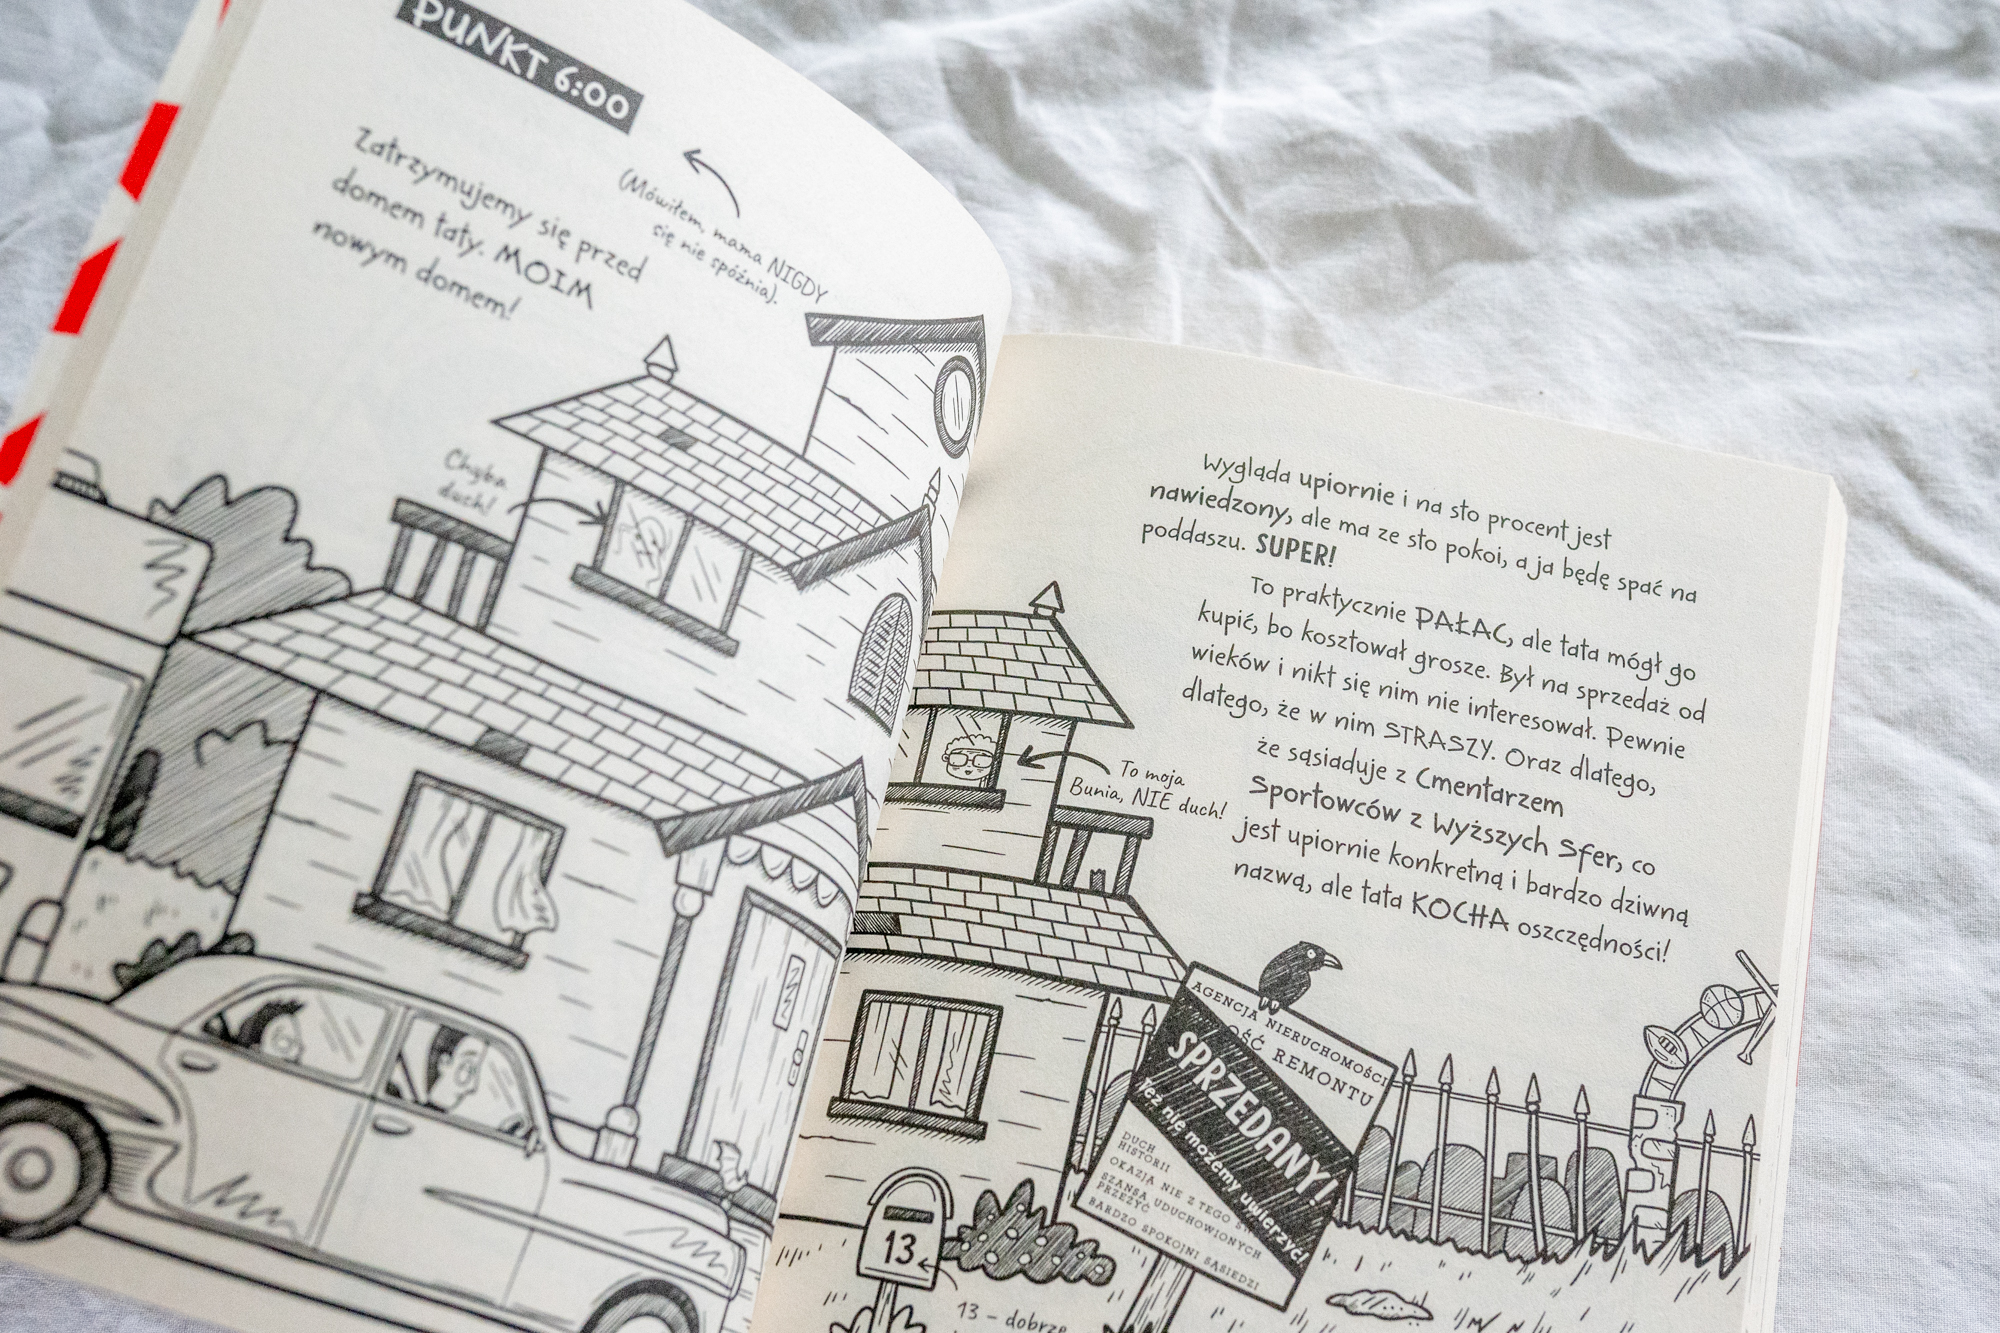 PUNKT 6:00
(Mówiłem, mama NIGDY
się nie spóźnia).
Zatrzymujemy się przed
domem taty. MOIM
nowym domem!
Chyba
duch!
Wygląda upiornie i na sto procent jest
nawiedzony, ale ma ze sto pokoi, a ja będę spać na
poddaszu. SUPER!
To praktycznie PAŁAC, ale tata mógł go
kupić, bo kosztował grosze. Był na sprzedaż od
wieków i nikt się nim nie interesował. Pewnie
dlatego, że w nim STRASZY. Oraz dlatego,
że sąsiaduje z Cmentarzem
Sportowców z Wyższych Sfer, co
jest upiornie konkretną i bardzo dziwną
nazwą, ale tata KOCHA oszczędności!
To moja
Bunia, NIE duch!
AGENCJA NIERUCHOMOŚCI
OŚĆ REMONTU
SPRZEDANY!
Też nie możemy uwierzyć!
DUCH
HISTORII
OKAZJA NIE Z TEGO
SZANSA UDUCHOWIONYCH
PRZEŻYĆ
BARDZO SPOKOJNI SĄSIEDZI
13
13 – dobrze